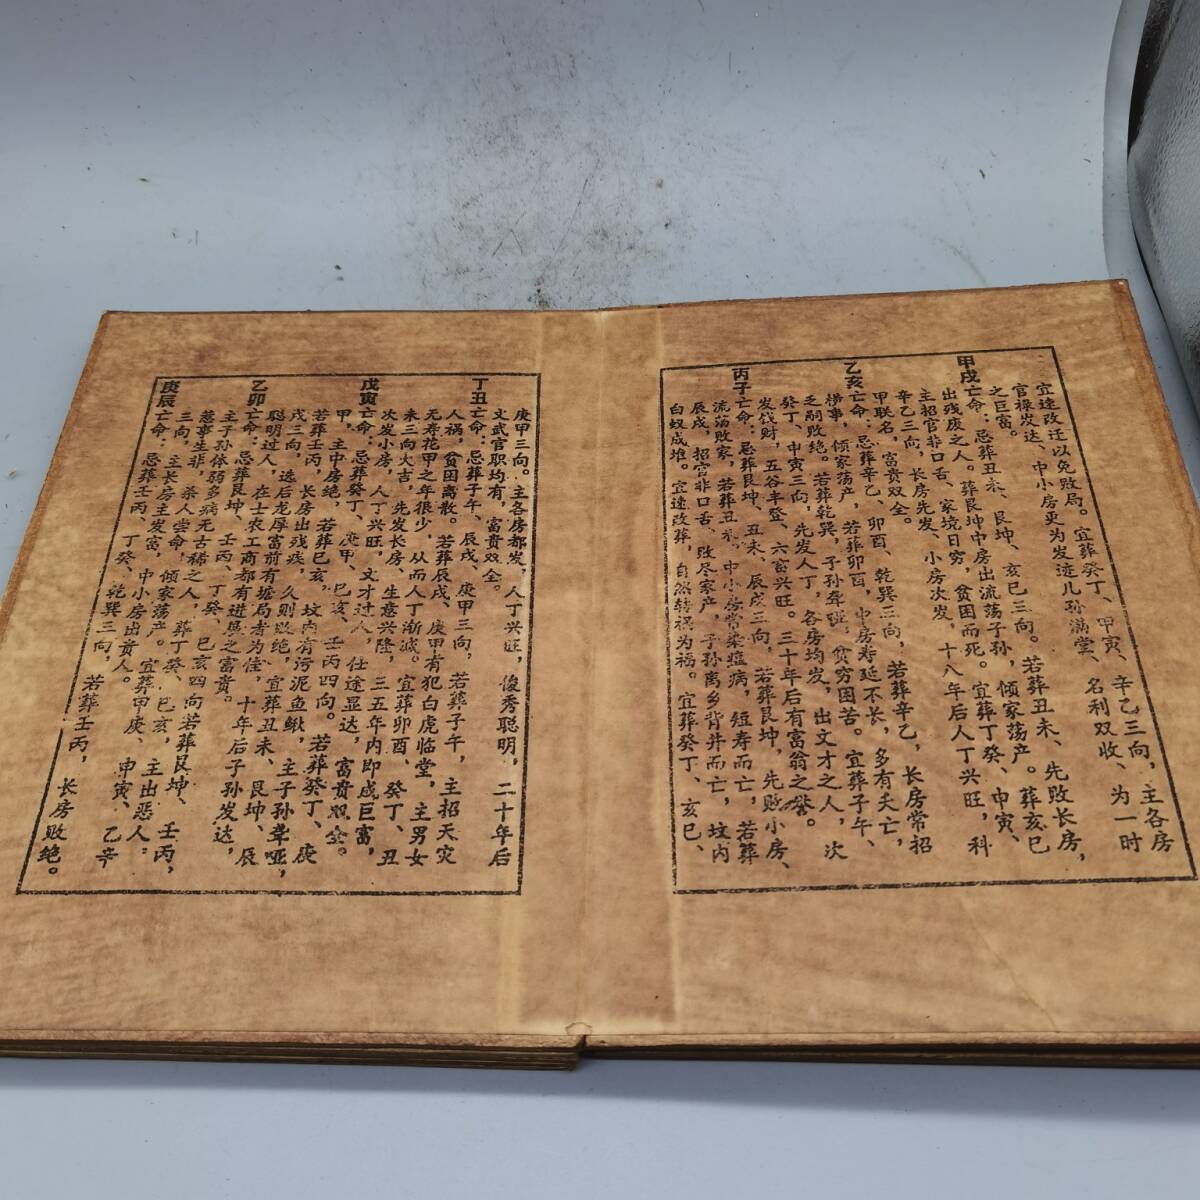 宜速改迁以免败局。宜葬癸丁、甲寅、辛乙三向，主各房
官禄发达、中小房更为发迹儿孙满堂、名利双收、为一时
之巨富。
甲戌亡命：忌葬丑未、艮坤、亥巳三向。若葬丑未、先败长房，
出残废之人。葬艮坤中房出流荡子孙，倾家荡产。葬亥巳
主招官非口舌、家境日穷，贫困而死。宜葬丁癸、申寅、
辛乙三向，长房先发、小房次发，十八年后人丁兴旺，科
甲联名，富贵双全。
乙亥亡命：忌葬辛乙、卯酉、乾巽三向，若葬辛乙，长房常招
祸事，倾家荡产，若葬卯酉，中房寿延不长，多有夭亡，
乏嗣败绝。若葬乾巽，子孙聋哑，贫穷困苦。宜葬子午、
癸丁、申寅三向，先发人丁，各房均发，出文才之人，次
发伐财，五谷丰登、六畜兴旺。三十年后有富翁之誉。
丙子亡命：忌葬艮坤、丑未、辰戌三向，若葬艮坤，先败小房、
流荡败家，若葬丑未，中小房常染瘟病，短寿而亡，若葬
辰戌，招官非口舌、败尽家产，子孙离乡背井而亡，坟内
白蚁成堆。宜速改葬，自然转祸为福。宜葬癸丁、亥巳、
庚甲三向。主各房都发，人丁兴旺，俊秀聪明，二十年后
文武官职均有，富贵双全。
丁丑亡命：忌葬子午、辰戌、庚甲三向，若葬子午，主招天灾
人祸，贫困离散。若葬辰戌、庚甲有犯白虎临堂，主男女
无寿花甲之年很少，从而人丁渐减。宜葬卯酉、癸丁、丑
未三向大吉，先发长房、生意兴隆，三五年内即成巨富，
次发小房，人丁兴旺，文才过人，仕途显达，富贵双全。
戊寅亡命：忌葬癸丁、庚甲、巳亥、壬丙四向。若葬癸丁、庚
甲，主中房绝，若葬巳亥，坟内有污泥鱼鳅，主子孙聋哑，
若葬壬丙，长房出残疾，久则败绝，宜葬丑未、艮坤、辰
戌三向，选后龙厚富前有塘局者为佳，十年后子孙发达，
聪明过人，在士农工商都有进展之富贵。
乙卯亡命：忌葬艮坤、壬丙、丁癸、巳亥四向若葬艮坤、壬丙，
主子孙体弱多病无古稀之人，葬丁癸、巳亥，主出恶人：
惹事生非，杀人尝命，倾家荡产。宜葬甲庚、申寅、乙辛
三向，主长房主发富，中小房出贵人。
庚辰亡命：忌葬壬丙、丁癸、乾巽三向，若葬壬丙，长房败绝。